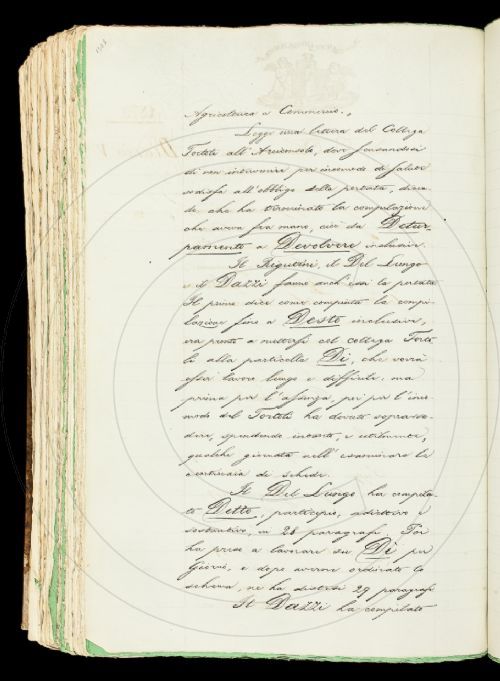 Agricoltura e Commercio.,
Legge una lettera del Collega
Tortoli all'Arciconsolo, dove scusandosi
di non intervenire per incomodo di salute
sodisfà all'obbligo della portata, dicen
do che ha terminato la compilazione
che aveva fra mano, cioè da Detur
pamento a Devolvere inclusive.
Il Rigutini, il Del Lungo
e il Dazzi fanno anch'essi la portata
Il primo dice come compiuta la compi-
lazione fino a Desto inclusive,
era pronto a mettersi col collega Torto
li alla particella Di, che vorrà
esser lavoro lungo e difficile; ma
prima per l'assenza, poi per l'inco-
modo del Tortoli ha dovuto soprasse-
dere, spendendo intanto, e utilmente,
qualche giornata nell'esaminare le
centinaia di schede.
Il Del Lungo ha compila-
to Detto, participio, adiettivo e
sostantivo, in 28 paragrafi. Poi
ha preso a lavorare su Dì per
Giorno, e dopo averne ordinato lo
schema, ne ha distesi 29 paragrafi
Il Dazzi ha compilato